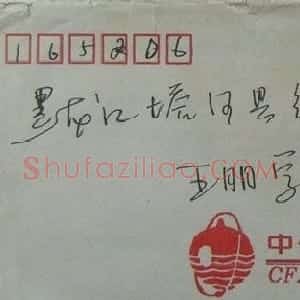 165206
黑龙江塔河县
Shufaziliao.COM
王丽
中
CF